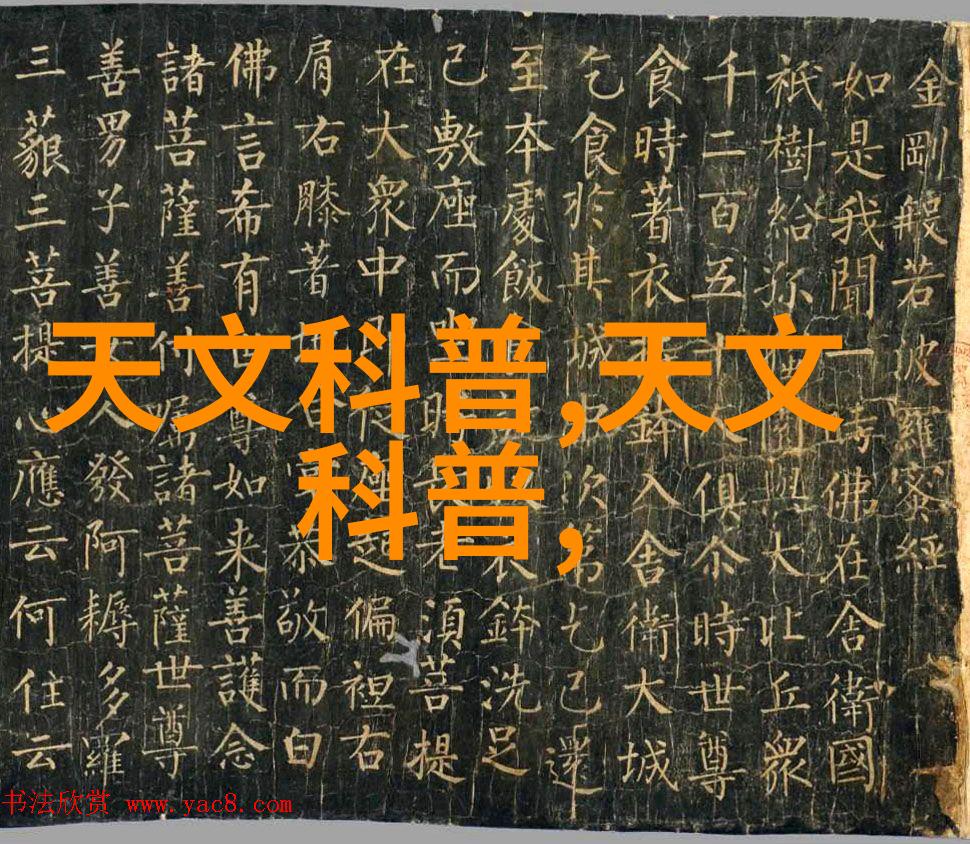 金剛般若波羅蜜經
如是我聞一時佛在舍衛國
祇樹給孤獨園與大比丘眾
千二百五十人俱尒時世尊
食時著衣持鉢入舍衛大城
乞食於其城中次第乞已還
至本處飯衣鉢洗足
已敷座而坐時長老須菩提
在大眾中從座起偏袒右
肩右膝著恭敬而白
佛言希有世尊如来善護念
諸菩薩善付囑諸菩薩世尊
善男子善女人發阿耨多羅
三藐三菩提心應云何住云
天文科普,天文
科普,
书法欣赏 www.yac8.com